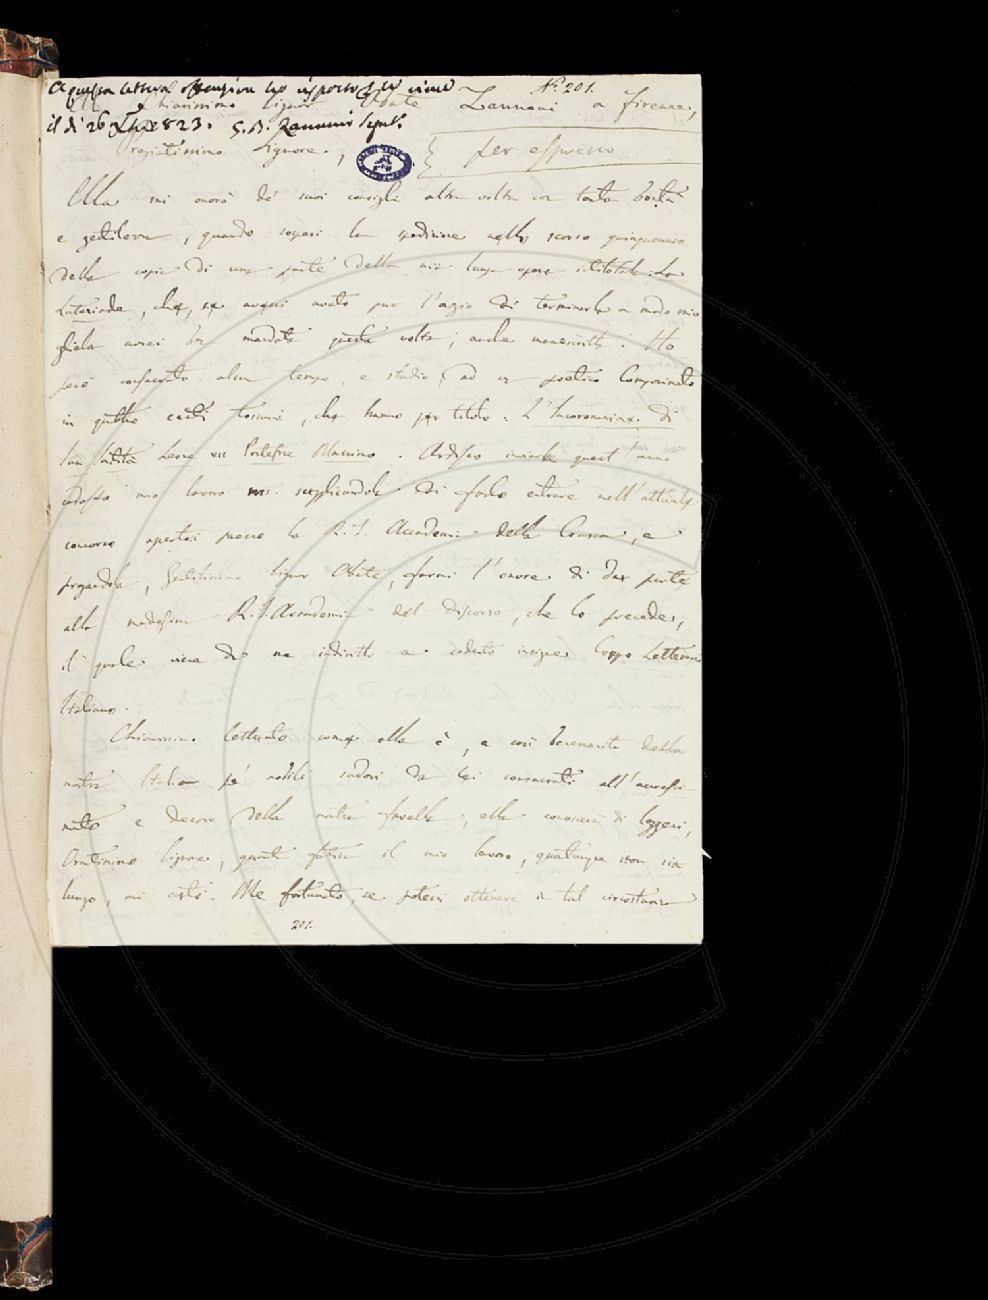 A questa lettera ho risposto
N.° 201.
Chiarissimo Signor Abate Zannoni a Firenze,
il dì 26 Xbre 1823. G. B. Zannoni Segret.
Pregiatissimo Signore. per espresso
Ella mi onorò de' suoi consigli altra volta con tanta bontà
e gentilezza, quando sospesi la spedizione nello scorso quinquennio
della copia di una parte della mia lunga opera intitolata: La
che, se avessi avuto pur l'agio di terminarla a modo mio
avrei mandata questa volta, anche manoscritta. Ho
però consacrato alcun tempo, e studio, ad un poetico Componimento
in quattro canti che hanno per titolo: L'Incoronazione di
Sua Santità Leone XII Pontefice Massimo. Ardisco inviarle quest'anno
mio lavoro ms. supplicandola di farlo entrare nell'attuale
concorso apertosi presso la R. I. Accademia della Crusca, e
pregandola, Gentilissimo Signor Abate, farmi l'onore di dar parte
alla medesima R. I. Accademia del discorso, che lo precede,
il quale viene da me indiritto a codesto insigne Corpo Letterario
Italiano.
Chiarissimo Letterato com'ella è, e così benemerito della
nostra Italia pe' nobili sudori da Lei consacrati all'
e decoro della nostra favella, ella conoscerà di leggeri,
Ornatissimo Signore, quanta fatica il mio lavoro, quantunque non sia
lungo, mi costò. Me fortunato, se potessi ottenere in tal circostanza
201.